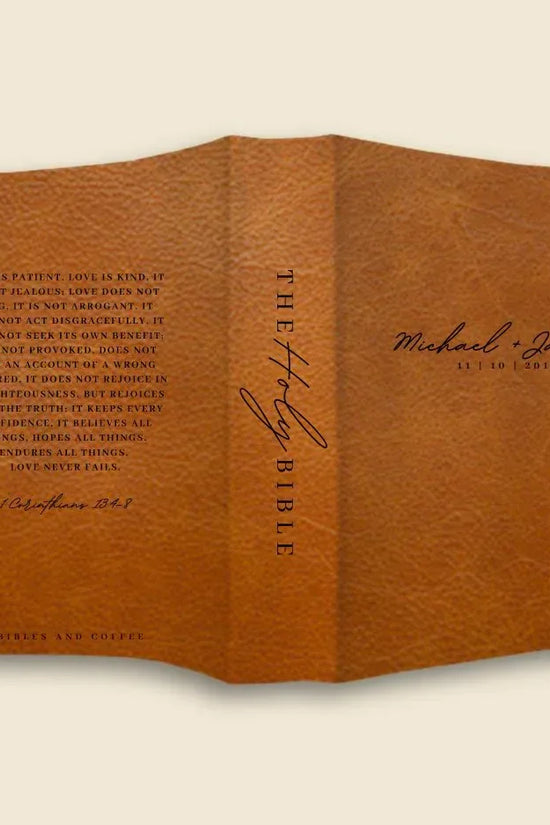 S PATIENT. LOVE IS KIND, IT
T JEALOUS; LOVE DOES NOT
G, IT IS NOT ARROGANT. IT
NOT ACT DISGRACEFULLY, IT
NOT SEEK ITS OWN BENEFIT;
NOT PROVOKED, DOES NOT
AN ACCOUNT OF A WRONG
RED, IT DOES NOT REJOICE IN
GHTEOUSNESS, BUT REJOICES
THE TRUTH; IT KEEPS EVERY
FIDENCE, IT BELIEVES ALL
NGS, HOPES ALL THINGS,
ENDURES ALL THINGS.
LOVE NEVER FAILS.
1 Corinthians 13:4-8
BIBLES AND COFFEE
THE Holy BIBLE
Michael + Ja
11 | 10 | 201